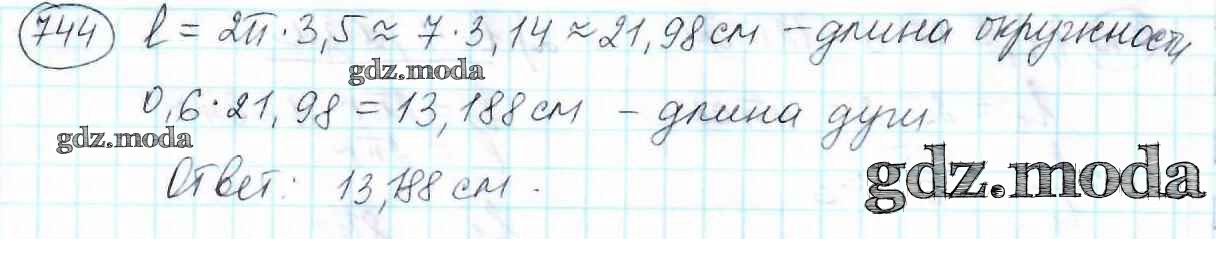 744 l = 2π · 3,5 ≈ 7 · 3,14 ≈ 21,98 см – длина окружности
gdz.moda
0,6 · 21,98 = 13,188 см – длина дуги
gdz.moda
gdz.moda
Ответ: 13,188 см.